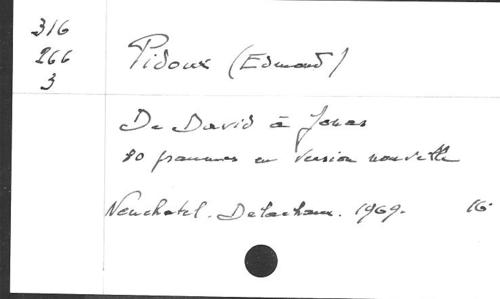 316
266
3
Pidoux (Edmond)
De David à Jonas
80 psaumes en version nouvelle
Neuchatel. Delachaux. 1969. 16°